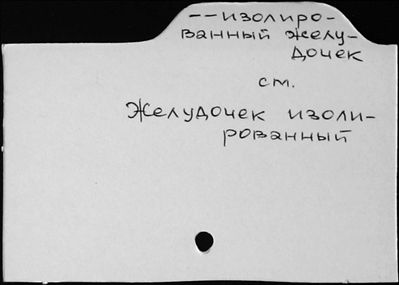 --изолиро-
ванный желу-
дочек
см.
Желудочек изоли-
рованный